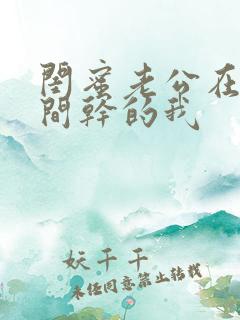 閨蜜老公在
間幹的我
妖千千
未经同意禁止转载